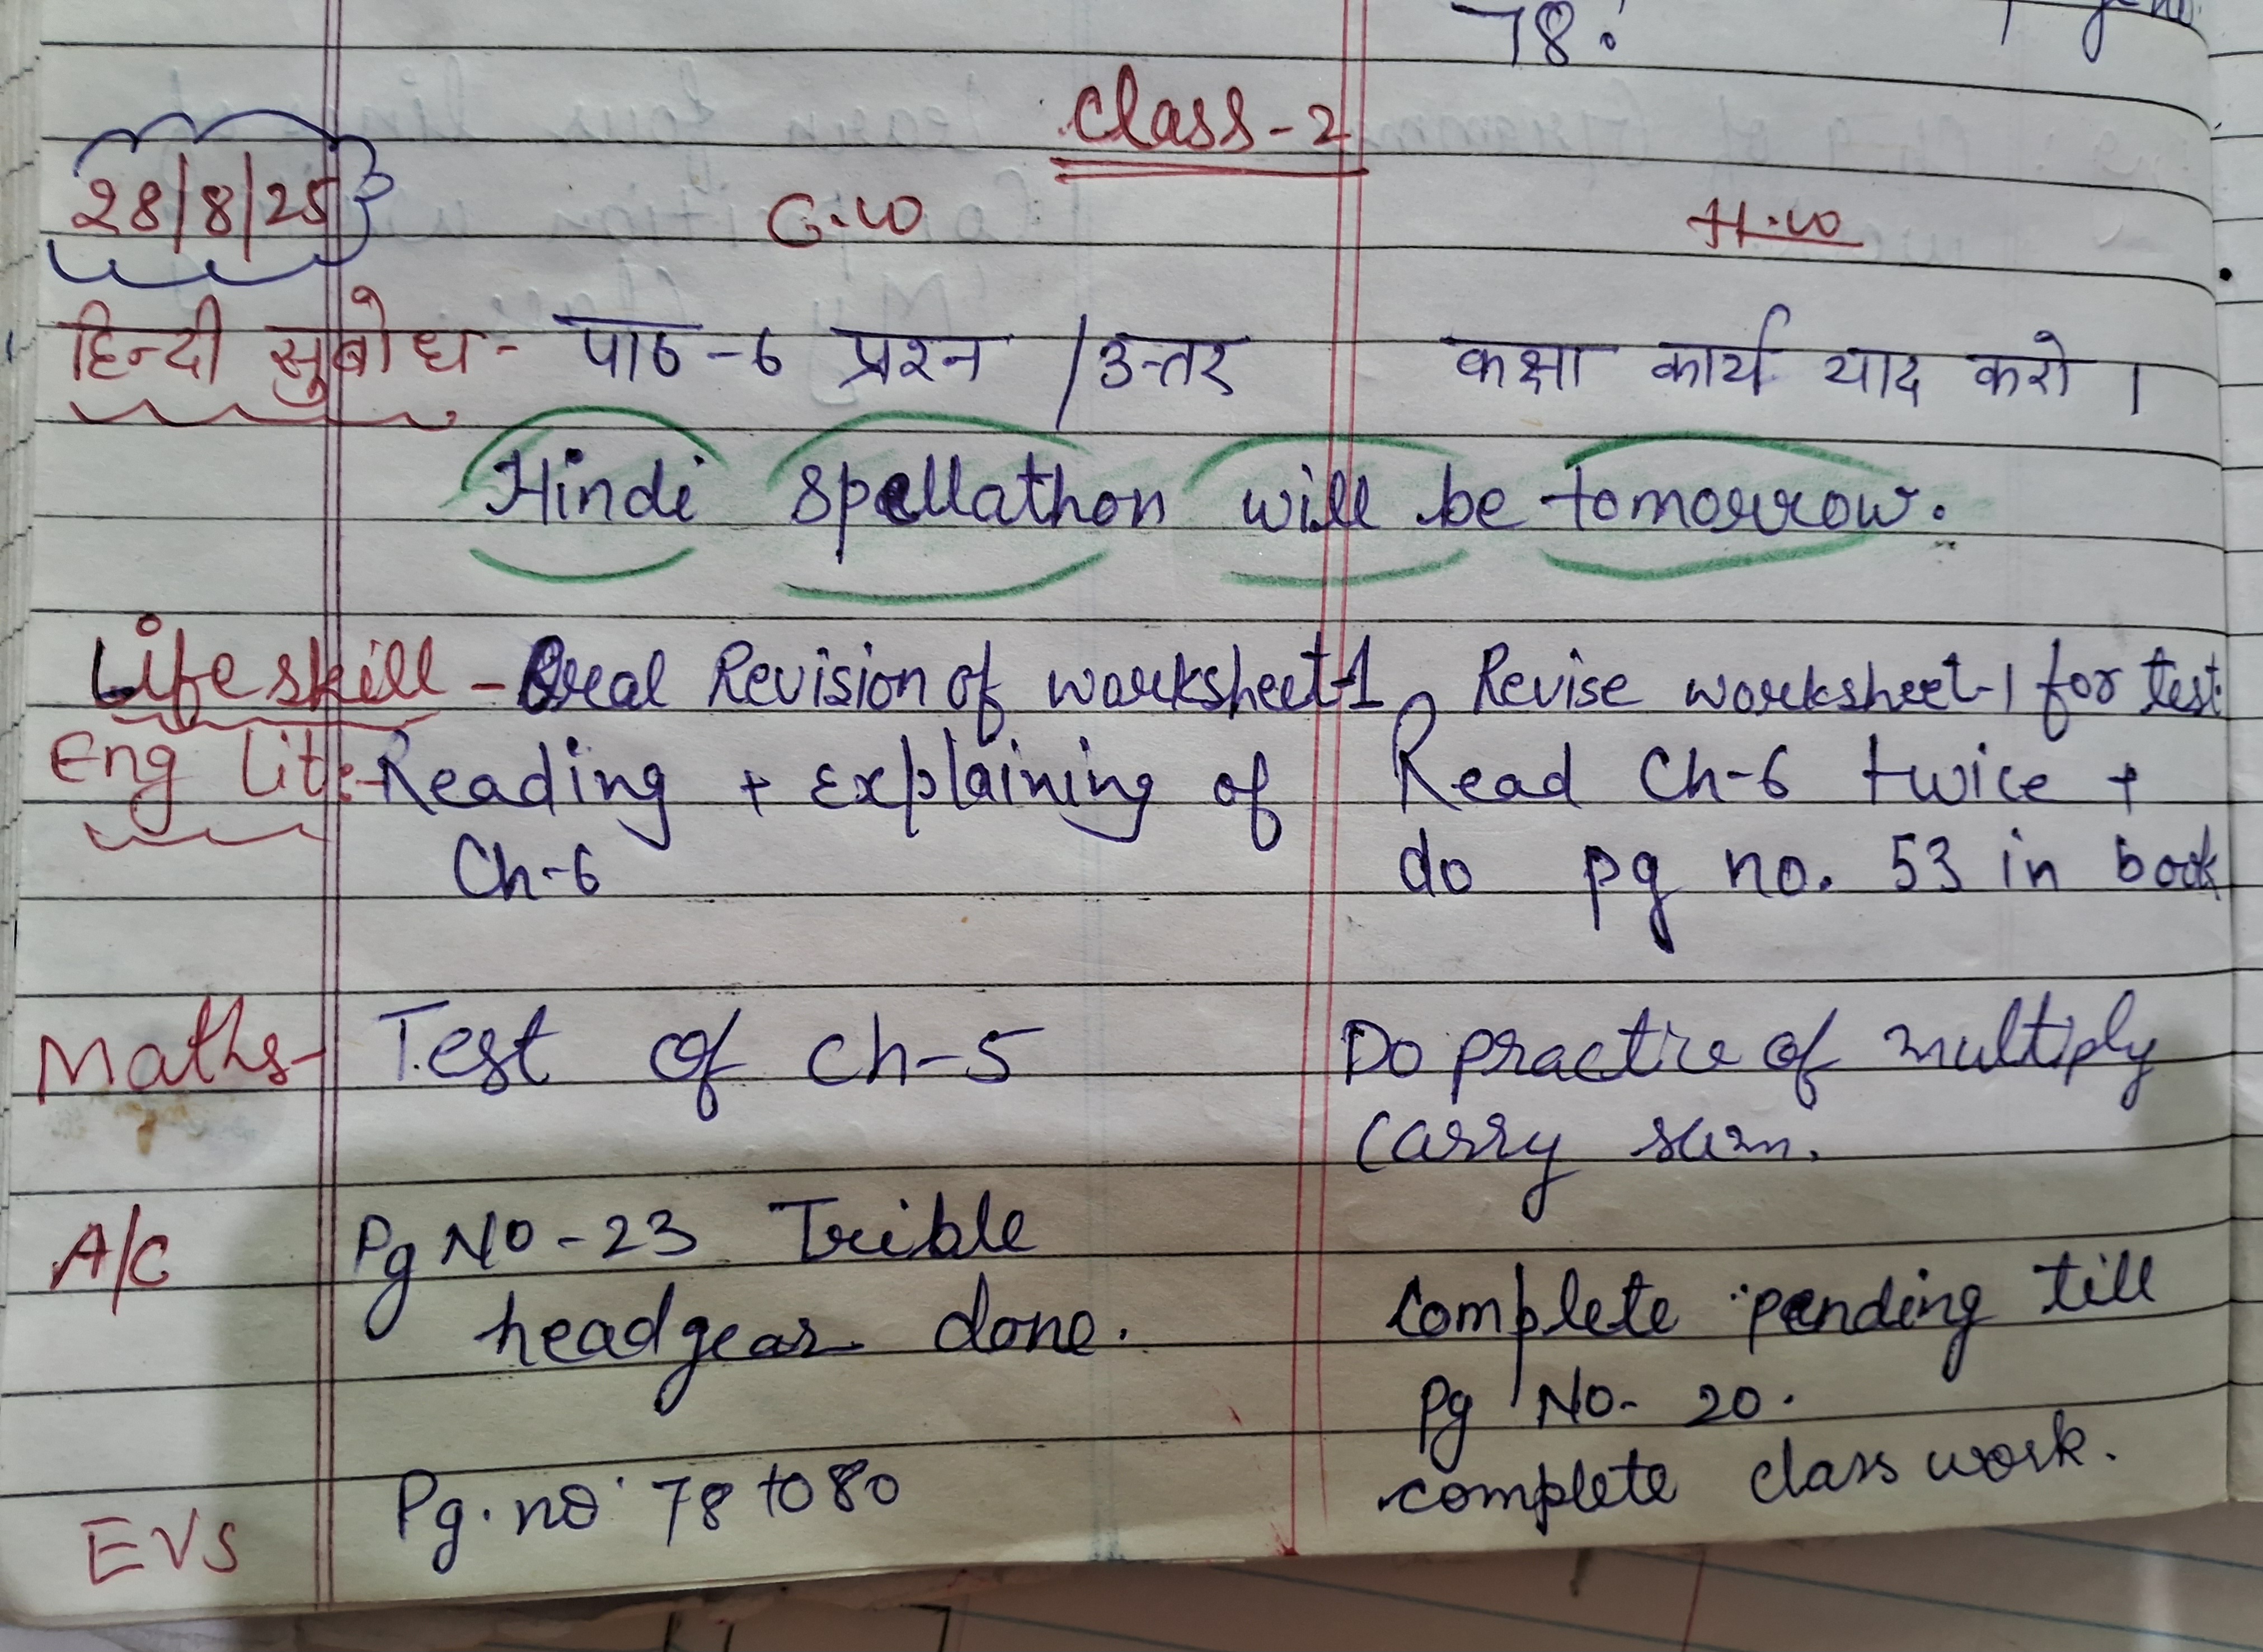 78.
Class-2
28/8/25
C.W H.W
हिन्दी सुबोध - पाठ-6 प्रश्न / उत्तर कक्षा कार्य याद करो ।
Hindi Spellathon will be tomorrow.
Life skill - Oral Revision of worksheet-1 Revise worksheet-1 for test.
Eng Lit:- Reading + Explaining of Read Ch-6 twice +
Ch-6 do pg no. 53 in book
Maths- Test of Ch-5 Do practice of multiply
carry sum.
A/C Pg No-23 Trible
headgear done. Complete pending till
Pg No- 20.
EVS Pg. no. 78 to 80 complete class work.